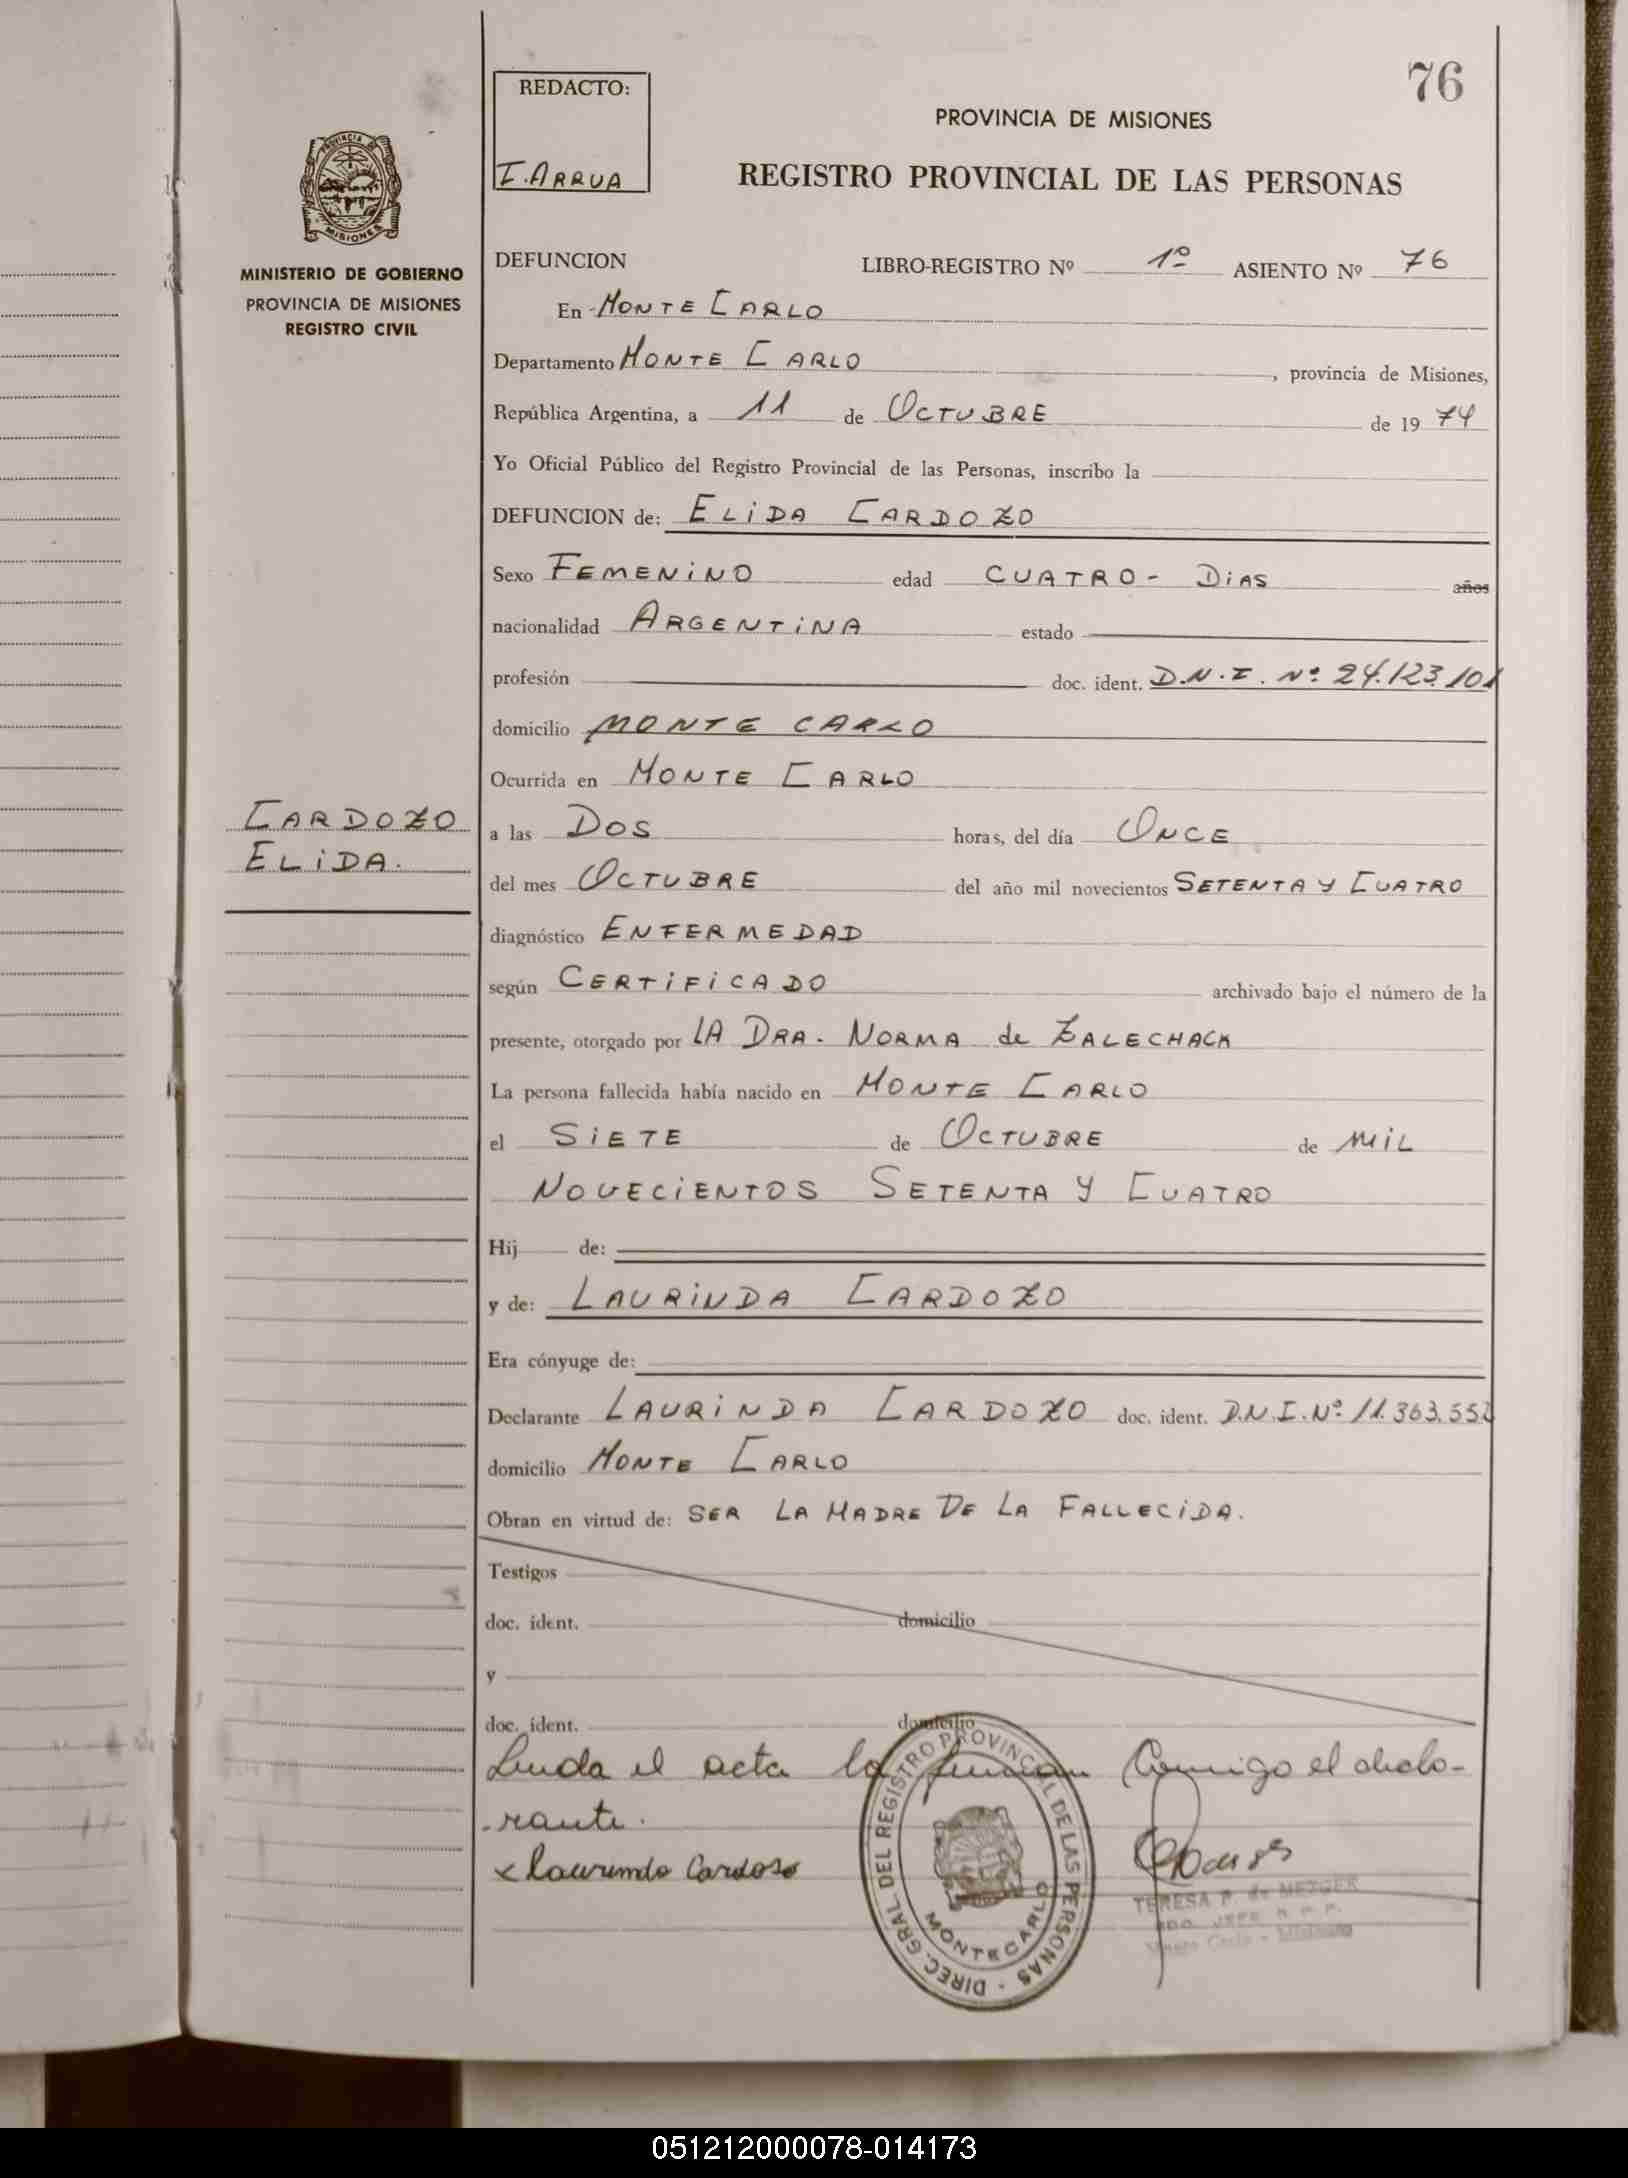 76
REDACTO:
I. ARRUA
PROVINCIA DE MISIONES
REGISTRO PROVINCIAL DE LAS PERSONAS
PROVINCIA DE
MISIONES
MINISTERIO DE GOBIERNO
PROVINCIA DE MISIONES
REGISTRO CIVIL
DEFUNCION LIBRO-REGISTRO Nº 1º ASIENTO Nº 76
En MONTE CARLO
Departamento MONTE CARLO, provincia de Misiones,
República Argentina, a 11 de OCTUBRE de 1974
Yo Oficial Público del Registro Provincial de las Personas, inscribo la
DEFUNCION de: ELIDA CARDOZO
Sexo FEMENINO edad CUATRO - DIAS años
nacionalidad ARGENTINA estado
profesión doc. ident. D.N.I. Nº 24.123.101
domicilio MONTE CARLO
Ocurrida en MONTE CARLO
CARDOZO
ELIDA.
a las DOS horas, del día ONCE
del mes OCTUBRE del año mil novecientos SETENTA Y CUATRO
diagnóstico ENFERMEDAD
según CERTIFICADO archivado bajo el número de la
presente, otorgado por LA DRA. NORMA de ZALECHACK
La persona fallecida había nacido en MONTE CARLO
el SIETE de OCTUBRE de MIL
NOVECIENTOS SETENTA Y CUATRO
Hij de:
y de: LAURINDA CARDOZO
Era cónyuge de:
Declarante LAURINDA CARDOZO doc. ident. D.N.I. Nº 11.363.55
domicilio MONTE CARLO
Obran en virtud de: SER LA MADRE DE LA FALLECIDA.
Testigos
doc. ident. domicilio
y
doc. ident. domicilio
Leida el acta la firman Conmigo el decla-
rante.
x Laurinda Cardoso
DIREC. GRAL. DEL REGISTRO PROVINCIAL DE LAS PERSONAS -
MONTECARLO
TERESA P. de METZGER
JEFE R. P. P.
Monte Carlo - Misiones
051212000078-014173